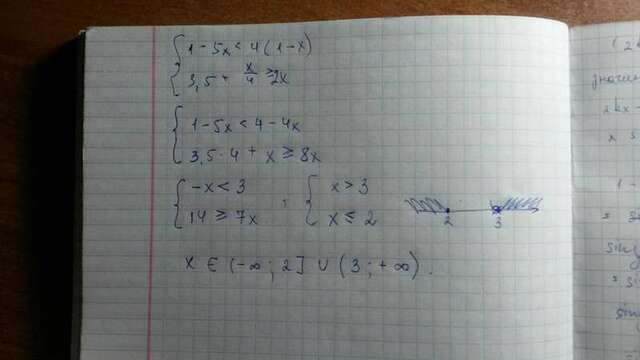 1 - 5x < 4 (1 - x)
3,5 + x/4 ≥ 2x
1 - 5x < 4 - 4x
3,5 · 4 + x ≥ 8x
-x < 3 ; x > 3
14 ≥ 7x x ≤ 2
2 3
x ∈ (-∞ ; 2] ∪ (3 ; +∞).